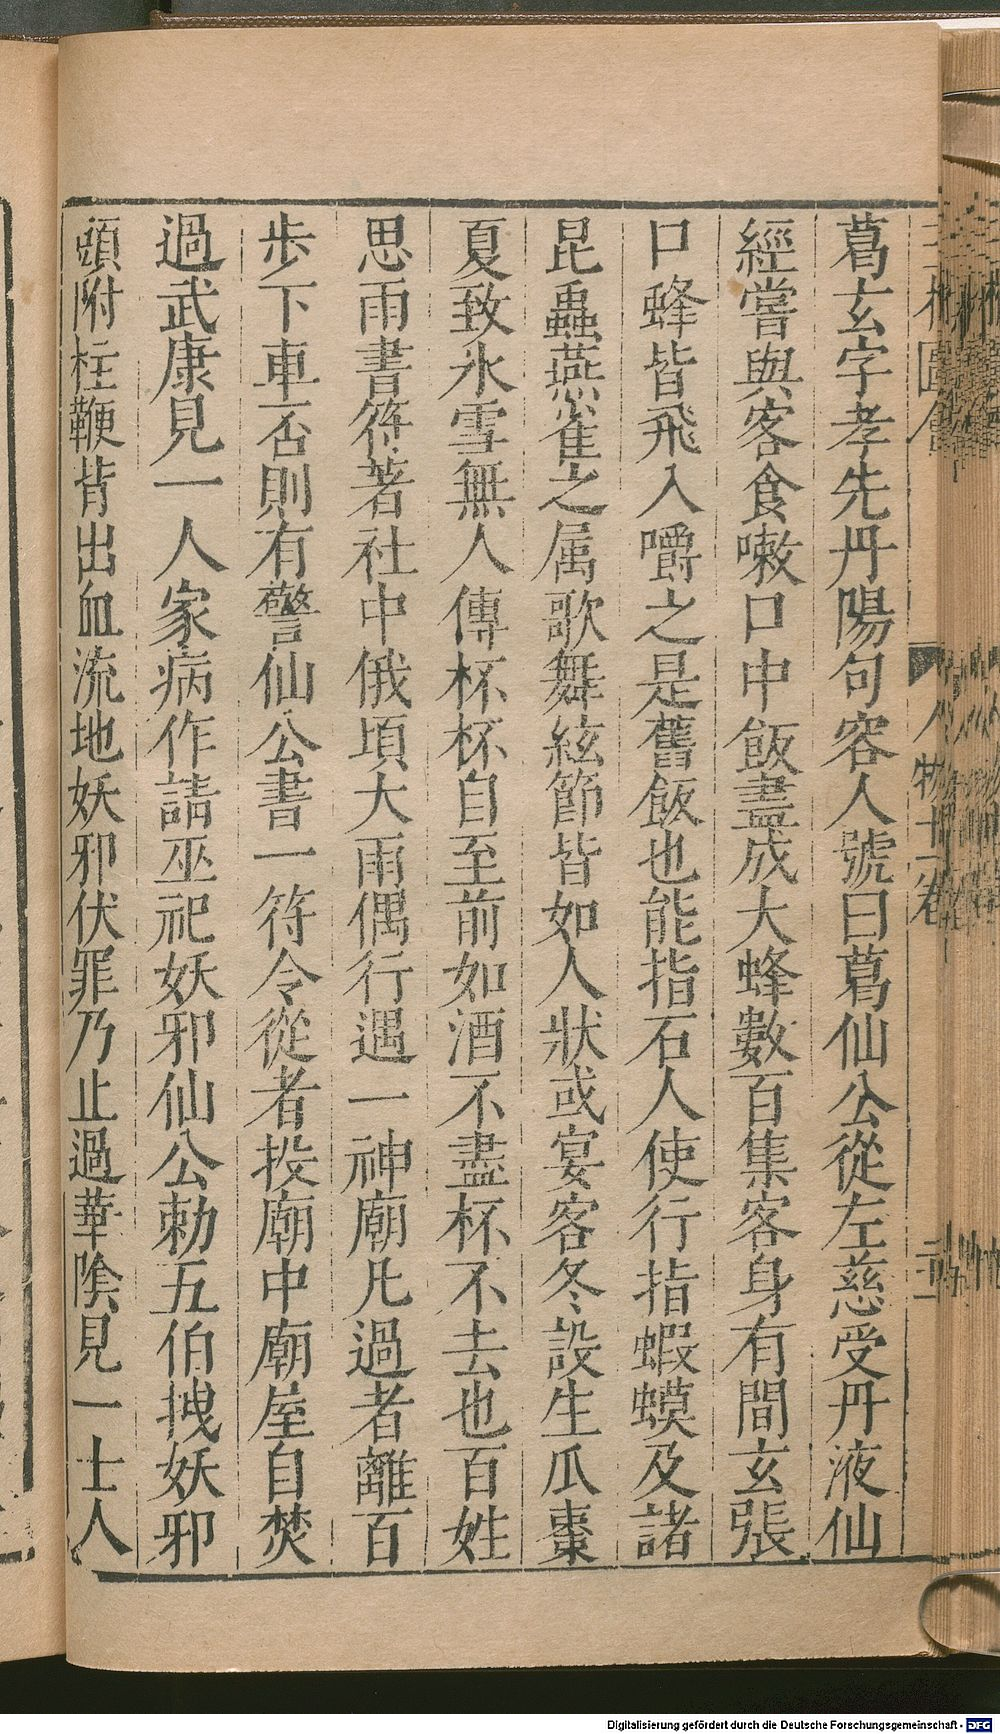 葛玄字孝先丹陽句容人號曰葛仙公從左慈受丹液仙
經嘗與客食嗽口中飯盡成大蜂數百集客身有間玄張
口蜂皆飛入嚼之是舊飯也能指石人使行指蝦蟆及諸
昆蟲燕雀之属歌舞絃節皆如人狀或宴客冬設生瓜棗
夏致氷雪無人傳杯杯自至前如酒不盡杯不去也百姓
思雨書符著社中俄頃大雨偶行遇一神廟凡過者離百
步下車否則有警仙公書一符令從者投廟中廟屋自焚
過武康見一人家病作請巫祀妖邪仙公勅五伯拽妖邪
頭附柱鞭背出血流地妖邪伏罪乃止過華陰見一士人
人物十一卷
Digitalisierung gefördert durch die Deutsche Forschungsgemeinschaft - DFG